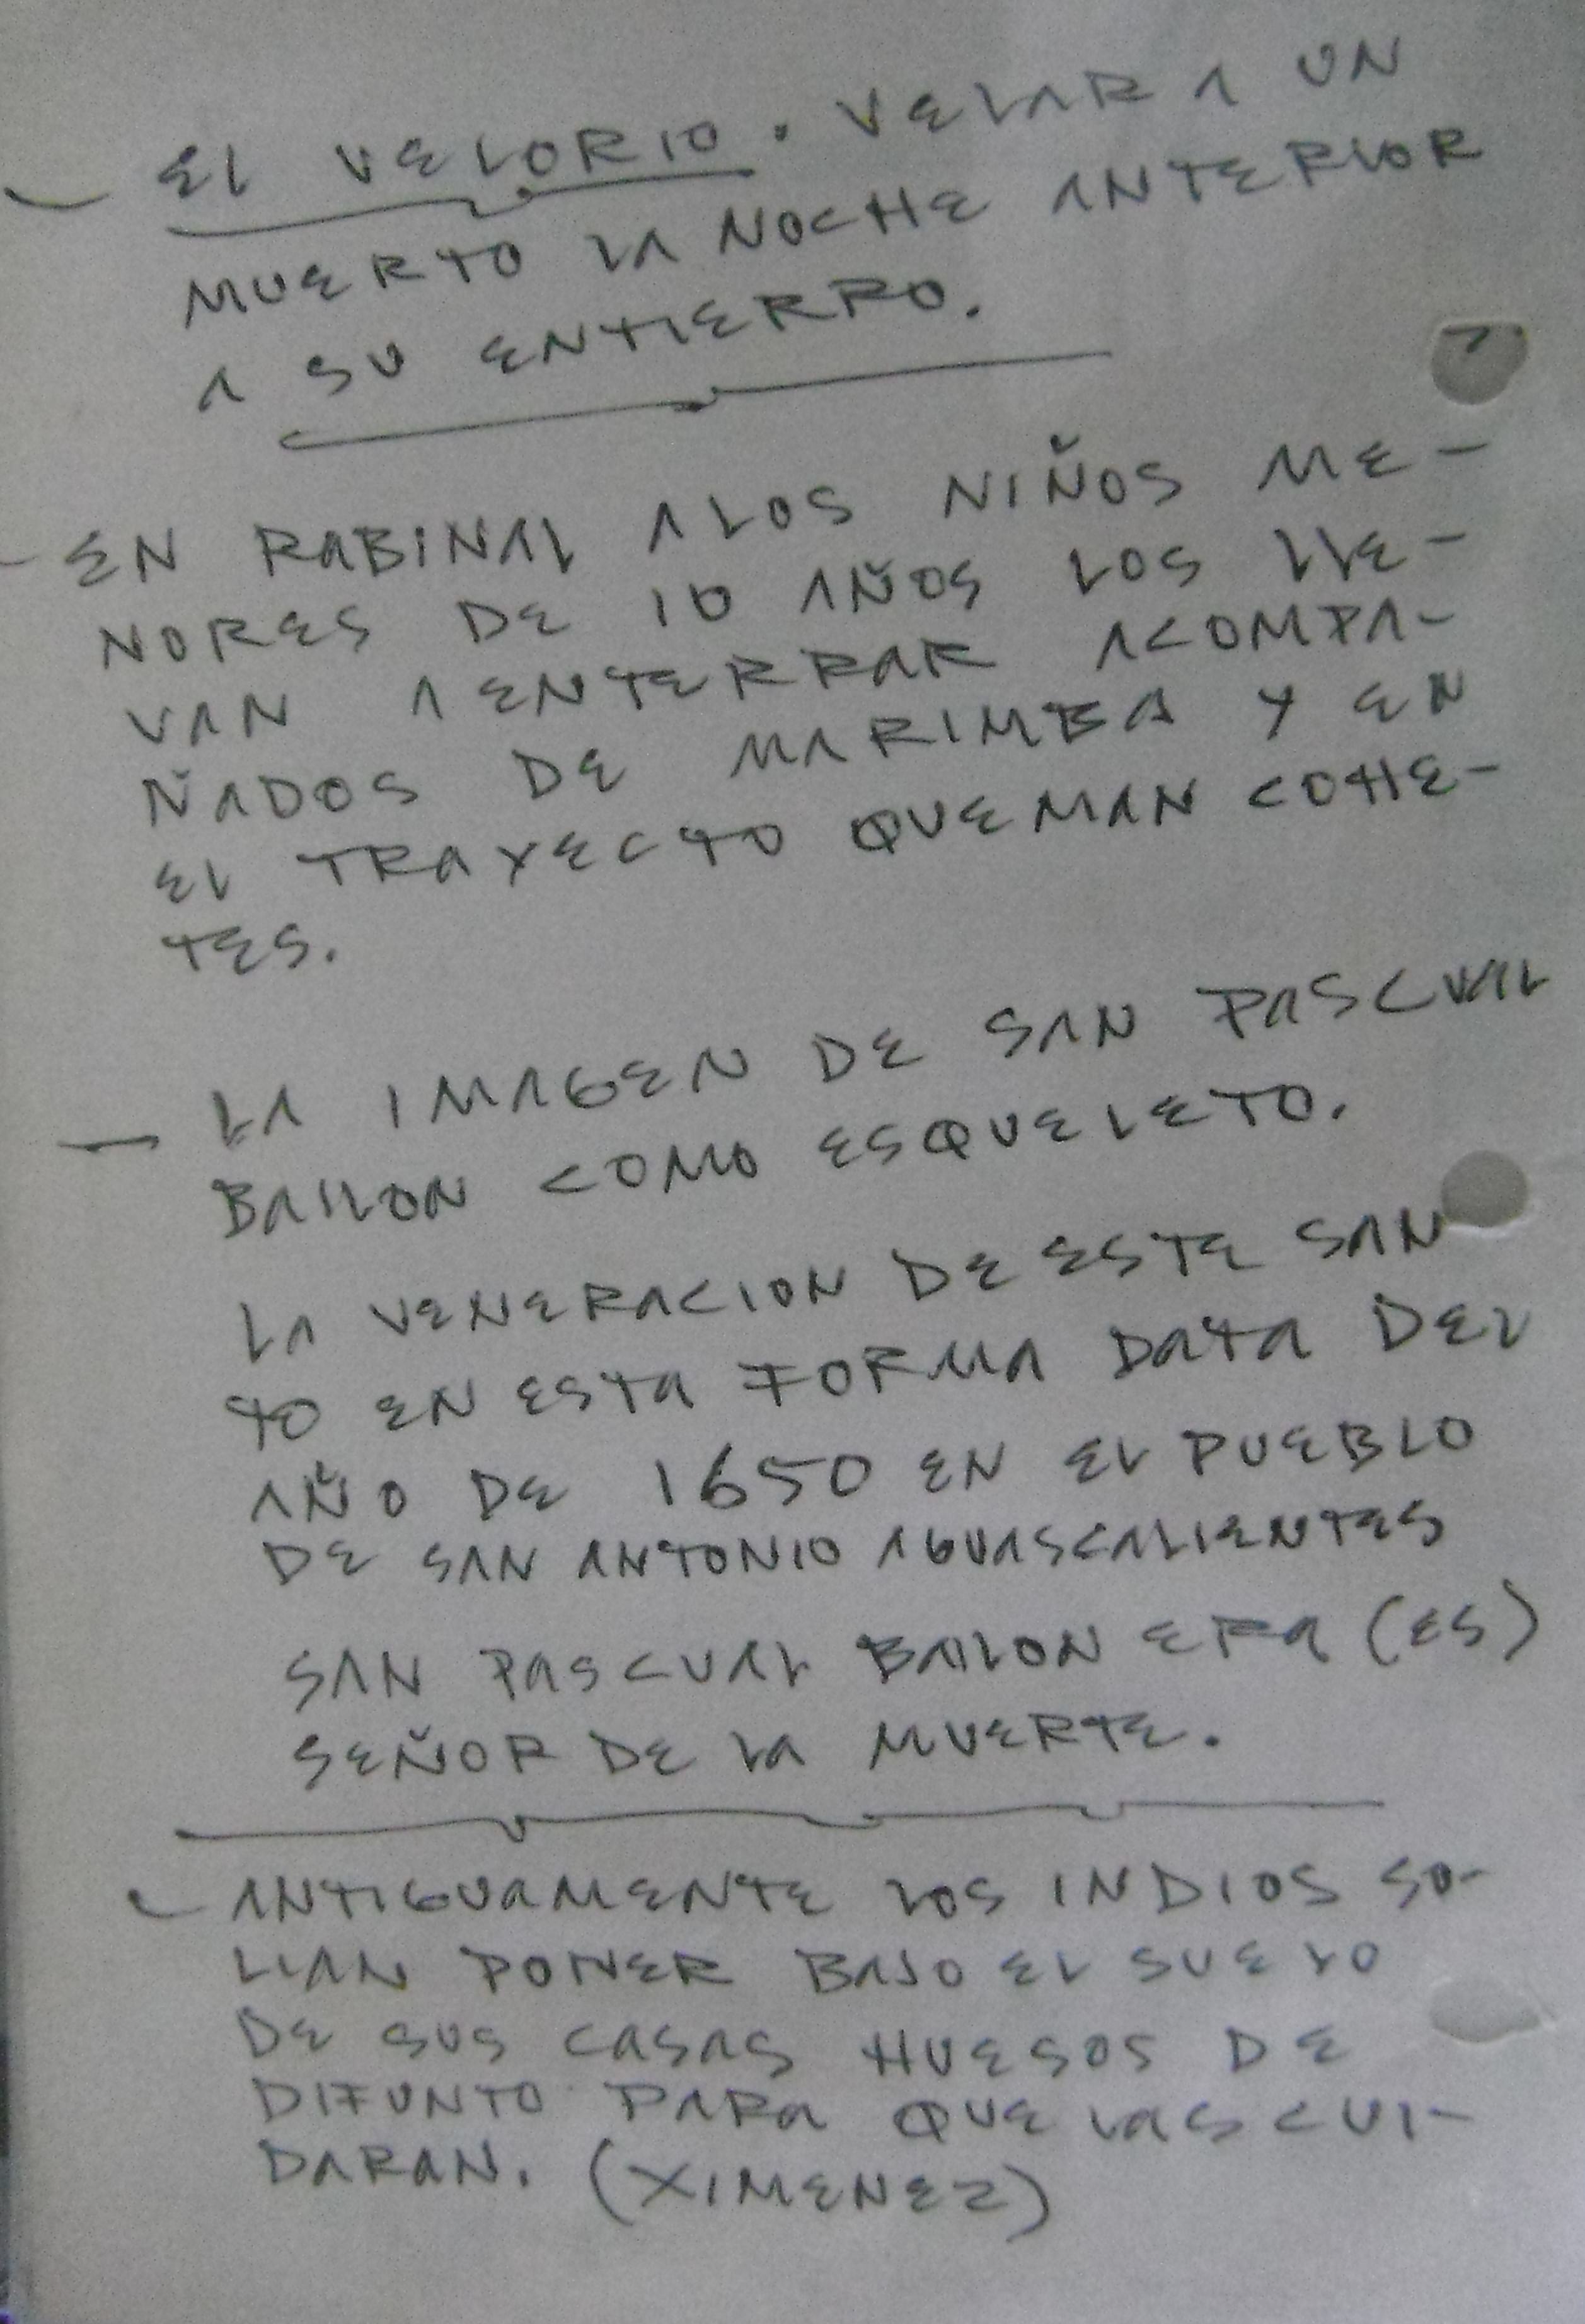 — EL VELORIO. VELAR A UN
MUERTO LA NOCHE ANTERIOR
A SU ENTIERRO.
- EN RABINAL A LOS NIÑOS ME-
NORES DE 10 AÑOS LOS LLE-
VAN A ENTERRAR ACOMPA-
ÑADOS DE MARIMBA Y EN
EL TRAYECTO QUEMAN COHE-
TES.
— LA IMAGEN DE SAN PASCUAL
BAILON COMO ESQUELETO.
LA VENERACION DE ESTE SAN
TO EN ESTA FORMA DATA DEL
AÑO DE 1650 EN EL PUEBLO
DE SAN ANTONIO AGUASCALIENTES
SAN PASCUAL BAILON ERA (ES)
SEÑOR DE LA MUERTE.
— ANTIGUAMENTE LOS INDIOS SO-
LIAN PONER BAJO EL SUELO
DE SUS CASAS HUESOS DE
DIFUNTO PARA QUE LAS CUI-
DARAN. (XIMENEZ)